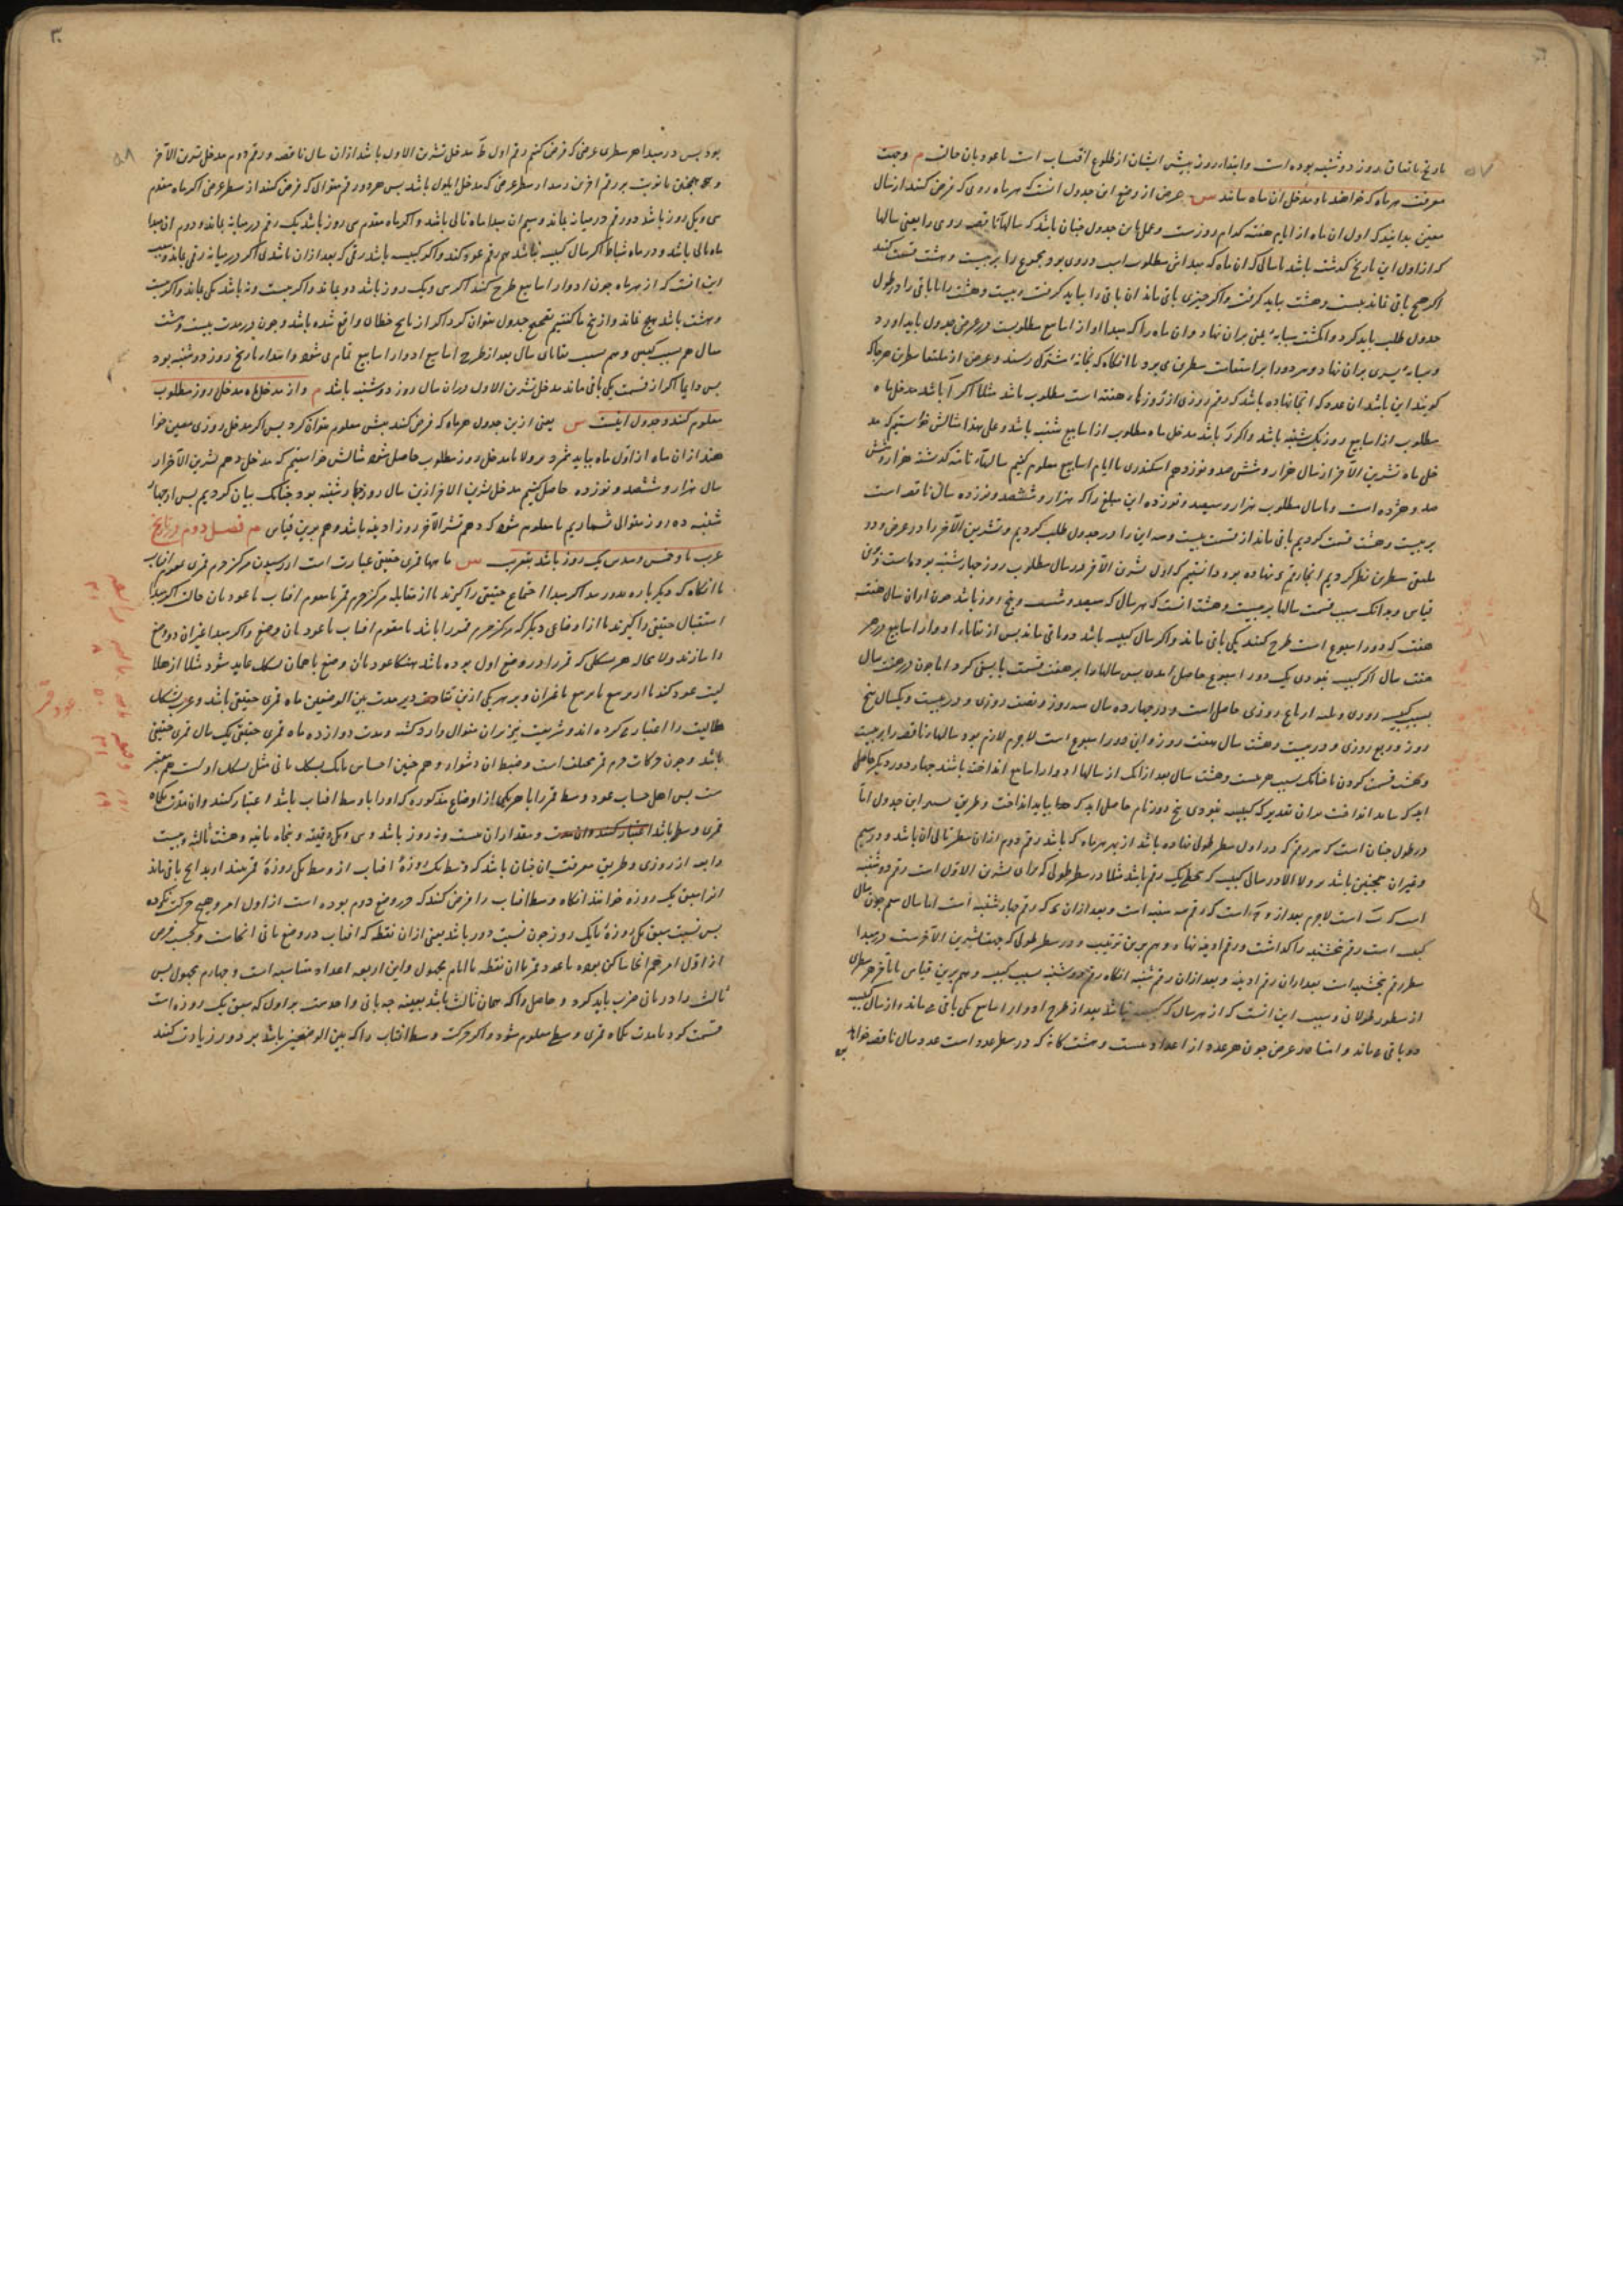 تاریخ باتفاق روز دوشنبه بوده است و ابتداء روز پیش ایشان از طلوع آفتاب است تا عود بان حالت م و جهت
معرفت هر ماه که خواهند تا مدخل آن ماه بدانند س غرض از وضع این جدول آنست که هر ماه رومی که فرض کنند از سال
معین بدانند که اول آن ماه از ایام هفته کدام روزست و عمل باین جدول چنان باشد که سالهاء ناقصه رومی را یعنی سالها
که از اول این تاریخ گذشته باشد تا سالی که آن ماه که مبدأش مطلوب است در وی بود مجموع را بر بیست و هشت قسمت کنند
اگر هیچ باقی نماند بیست و هشت باید گرفت و اگر چیزی باقی ماند آن باقی را باید گرفت و بیست و هشت را یا باقی را در طول
جدول طلب باید کرد و انگشت سبابه یمنی بران نهاد و آن ماه را که مبدأ او از اسابیع مطلوبست در عرض جدول باید آورد
و سبابه یسری بران نهاد و هر دو را بر استقامت سطرین می برد تا آنگاه که بخانه مشترک رسند و غرض از ملتقا سطرین هر جا که
گویند این باشد آن عدد که آنجا نهاده باشد که رقم روزی از روزهاء هفته است مطلوب باشد مثلا اگر ا باشد مدخل ماه
مطلوب از اسابیع روز یکشنبه باشد و اگر ز باشد مدخل ماه مطلوب از اسابیع شنبه باشد و علی هذا مثالش خواستیم که مد
خل ماه تشرین الآخر از سال هزار و ششصد و نوزدهم اسکندری با ایام اسابیع معلوم کنیم سالهاء تامه که گذشته هزار و شش
صد و هژده است و با سال مطلوب هزار و سیصد و نوزده این مبلغ را که هزار و ششصد و نوزده سال ناقصه است
بر بیست و هشت قسمت کردیم باقی ماند از قسمت بیست و سه این را در جدول طلب کردیم و تشرین الآخر را در عرض و در
ملتقی سطرین نظر کردیم آنجا رقم د نهاده بود دانستیم که اول تشرین الآخر در سال مطلوب روز چهارشنبه بوده است و برین
قیاس و بدانک سبب قسمت سالها بر بیست و هشت آنست که هر سال که سیصد و شصت و پنج روز باشد چون از آن سال هفته
هفت که دور اسبوع است طرح کنند یکی باقی ماند و اگر سال کبیسه باشد دو باقی ماند پس از بقایاء ادوار اسابیع در هر
هفت سال اگر کبیسه نبودی یک دور اسبوع حاصل آمدی پس سالها را بر هفت قسمت بایستی کرد اما چون در هفت سال
بسبب کبیسه روزی و ثلثه ارباع روزی حاصل است و در چهارده سال سه روز و نصف روزی و در بیست و یکسال پنج
روز و ربع روزی و در بیست و هشت سال هفت روز و این دور اسبوع است لاجرم لازم بود سالهاء ناقصه را بر بیست
و هشت قسمت کردن تا چنانک بسبب هر بیست و هشت سال بعد از آنک از سالها ادوار اسابیع انداخته باشند چهار دور دیگر حاصل
آید که بباید انداخت بران تقدیر که کبیسه نبودی پنج دور تام حاصل آید که بباید انداخت و طریق تسییر این جدول اما
در طول چنان است که هر رقم که در اول سطر طولی نهاده باشد از بهر هر ماه که باشد رقم دوم از آن سطر تالی آن باشد و در سیم
و غیر آن همچنین باشد بر ولا الا در سالی کبیسه که تخطی یک رقم باشد مثلا در سطر طولی که برای تشرین الاول است رقم دوشنبه
است که ب است لاجرم بعد ازو ج است که رقم سه شنبه است و بعد از آن د که رقم چهارشنبه است اما سال سیم چون سال
کبیسه است رقم پنجشنبه را گذاشت و رقم آدینه نهاد و هم برین ترتیب و در سطر طولی که جهت تشرین الآخرست در مبدأ
سطر رقم پنجشنبه است بعد از آن رقم آدینه و بعد از آن رقم شنبه آنگاه رقم دوشنبه بسبب کبیسه و هم برین قیاس تا بآخر هر سطری
از سطور طولانی و سبب این آنست که از هر سال که کبیسه نباشد بعد از طرح ادوار اسابیع یکی باقی می ماند و از سال کبیسه
دو باقی می ماند و اما در عرض چون هر عدد از اعداد بیست و هشت گانه که در سطر عدد است عدد سال ناقصه خواهد
بود پس در مبدأ هر سطری عرضی که فرض کنیم رقم اول ط مدخل تشرین الاول باشد از آن سال ناقصه و رقم دوم مدخل تشرین الآخر
و همچنین تا نوبت بر رقم آخرین رسد از سطر عرضی که مدخل ایلول باشد پس هر دو رقم متوالی که فرض کنند از سطر عرضی اگر ماه مقدم
سی و یک روز باشد دو رقم در میانه بماند و سیم آن مبدأ ماه تالی باشد و اگر ماه مقدم سی روز باشد یک رقم در میانه بماند و دوم آن مبدأ
ماه تالی باشد و در ماه شباط اگر سال کبیسه نباشد هم رقم عود کند و اگر کبیسه باشد رقمی که بعد از آن باشد بی آنکه در میانه رقمی بماند و سبب
این آنست که از هر ماه چون ادوار اسابیع طرح کنند اگر سی و یک روز باشد دو بماند و اگر بیست و نه باشد یکی بماند و اگر بیست
و هشت باشد هیچ نماند و از پنج ما گفتیم تصحیح جدول بتوان کرد اگر از ناسخ خطای واقع شده باشد و چون در مدت بیست و هشت
سال هم بسبب کبیس و هم بسبب بقایای سال بعد از طرح اسابیع ادوار اسابیع تمام می شود و ابتدار تاریخ روز دوشنبه بود
پس دایما اگر از قسمت یکی باقی ماند مدخل تشرین الاول در آن سال روز دوشنبه باشد م و از مدخل ماه مدخل روز مطلوب
معلوم کنند و جدول اینست س یعنی ازین جدول هر ماه که فرض کنند مبدأش معلوم بتوان کرد پس اگر مدخل روزی معین خوا
هند از آن ماه از اول ماه بباید شمرد بر ولا تا مدخل روز مطلوب حاصل شود مثالش خواستیم که مدخل دهم تشرین الآخر از
سال هزار و ششصد و نوزده حاصل کنیم مدخل تشرین الآخر ازین سال روز چهارشنبه بود چنانک بیان کردیم پس از چهار
شنبه ده روز متوالی شماریم تا معلوم شود که دهم تشرین الآخر روز آدینه باشد و هم برین قیاس م فصل دوم در تاریخ
عرب و خمس و سدس یک روز باشد بتقریب س ماهها قمری حقیقی عبارت است از رسیدن مرکز جرم قمر
تا آنگاه که دیگر باره بدو رسد اگر مبدأ اجتماع حقیقی را گیرند یا از مقابله مرکز جرم قمر با مقوم آفتاب تا عود بآن حالت اگر مبدأ
استقبال حقیقی را گیرند یا از اوضاعی دیگر که مرکز جرم قمر را باشد با مقوم آفتاب تا عود بآن وضع و اگر مبدأ غیر آن وضع
را سازند ولا محاله هر شکل که قمر را در وضع اول بوده باشد هنگام عود بآن وضع با همان شکل عاید شود مثلا از هلا
لیت عود کند یا از تربیع با تربیع یا غیر آن و بر هر یکی ازین تقادیر مدت بین الوضعین ماه قمری حقیقی باشد و عرب شکل
هلالیت را اعتبار کرده اند و شریعت نیز بران منوال وارد گشته و مدت دوازده ماه قمری حقیقی یک سال قمری حقیقی
باشد و چون حرکات جرم قمر مختلف است و ضبط آن دشوار و همچنین احساس بآنک شکل ثانی مثل شکل اولست هم متعسر
ست پس اهل حساب عود وسط قمر را با هر یکی از اوضاع مذکوره که او را با وسط آفتاب باشد اعتبار کنند و آن مدت یکماه
قمری وسط باشد و مقدار آن بیست و نه روز باشد و سی و یک دقیقه و پنجاه ثانیه و هشت ثالثه و بیست
رابعه از روزی و طریق معرفت آن چنان باشد که وسط یک روزه آفتاب از وسط یکروزه قمر بیندازند آنچ باقی ماند
آنرا سبق یک روزه خوانند آنگاه وسط آفتاب را فرض کنند که در وضع دوم بوده است از اول امر و هیچ حرکت نکرده
پس نسبت سبق یکروزه با یک روز چون نسبت دور باشد یعنی از آن نقطه که آفتاب در وضع ثانی آنجاست و بحسب فرض
از اول امر هم آنجا ساکن بوده تا عود قمر با آن نقطه با ایام مجهول و این اربعه اعداد متناسبه است و چهارم مجهول پس
ثالث را در ثانی ضرب باید کرد و حاصل را که همان ثالث باشد بعینه چه ثانی واحدست بر اول که سبق یک روزه است
قسمت کرد تا مدت یکماه قمری وسطی معلوم شود و اگر حرکت وسط آفتاب را که بین الوضعین باشد بر دور زیادت کنند